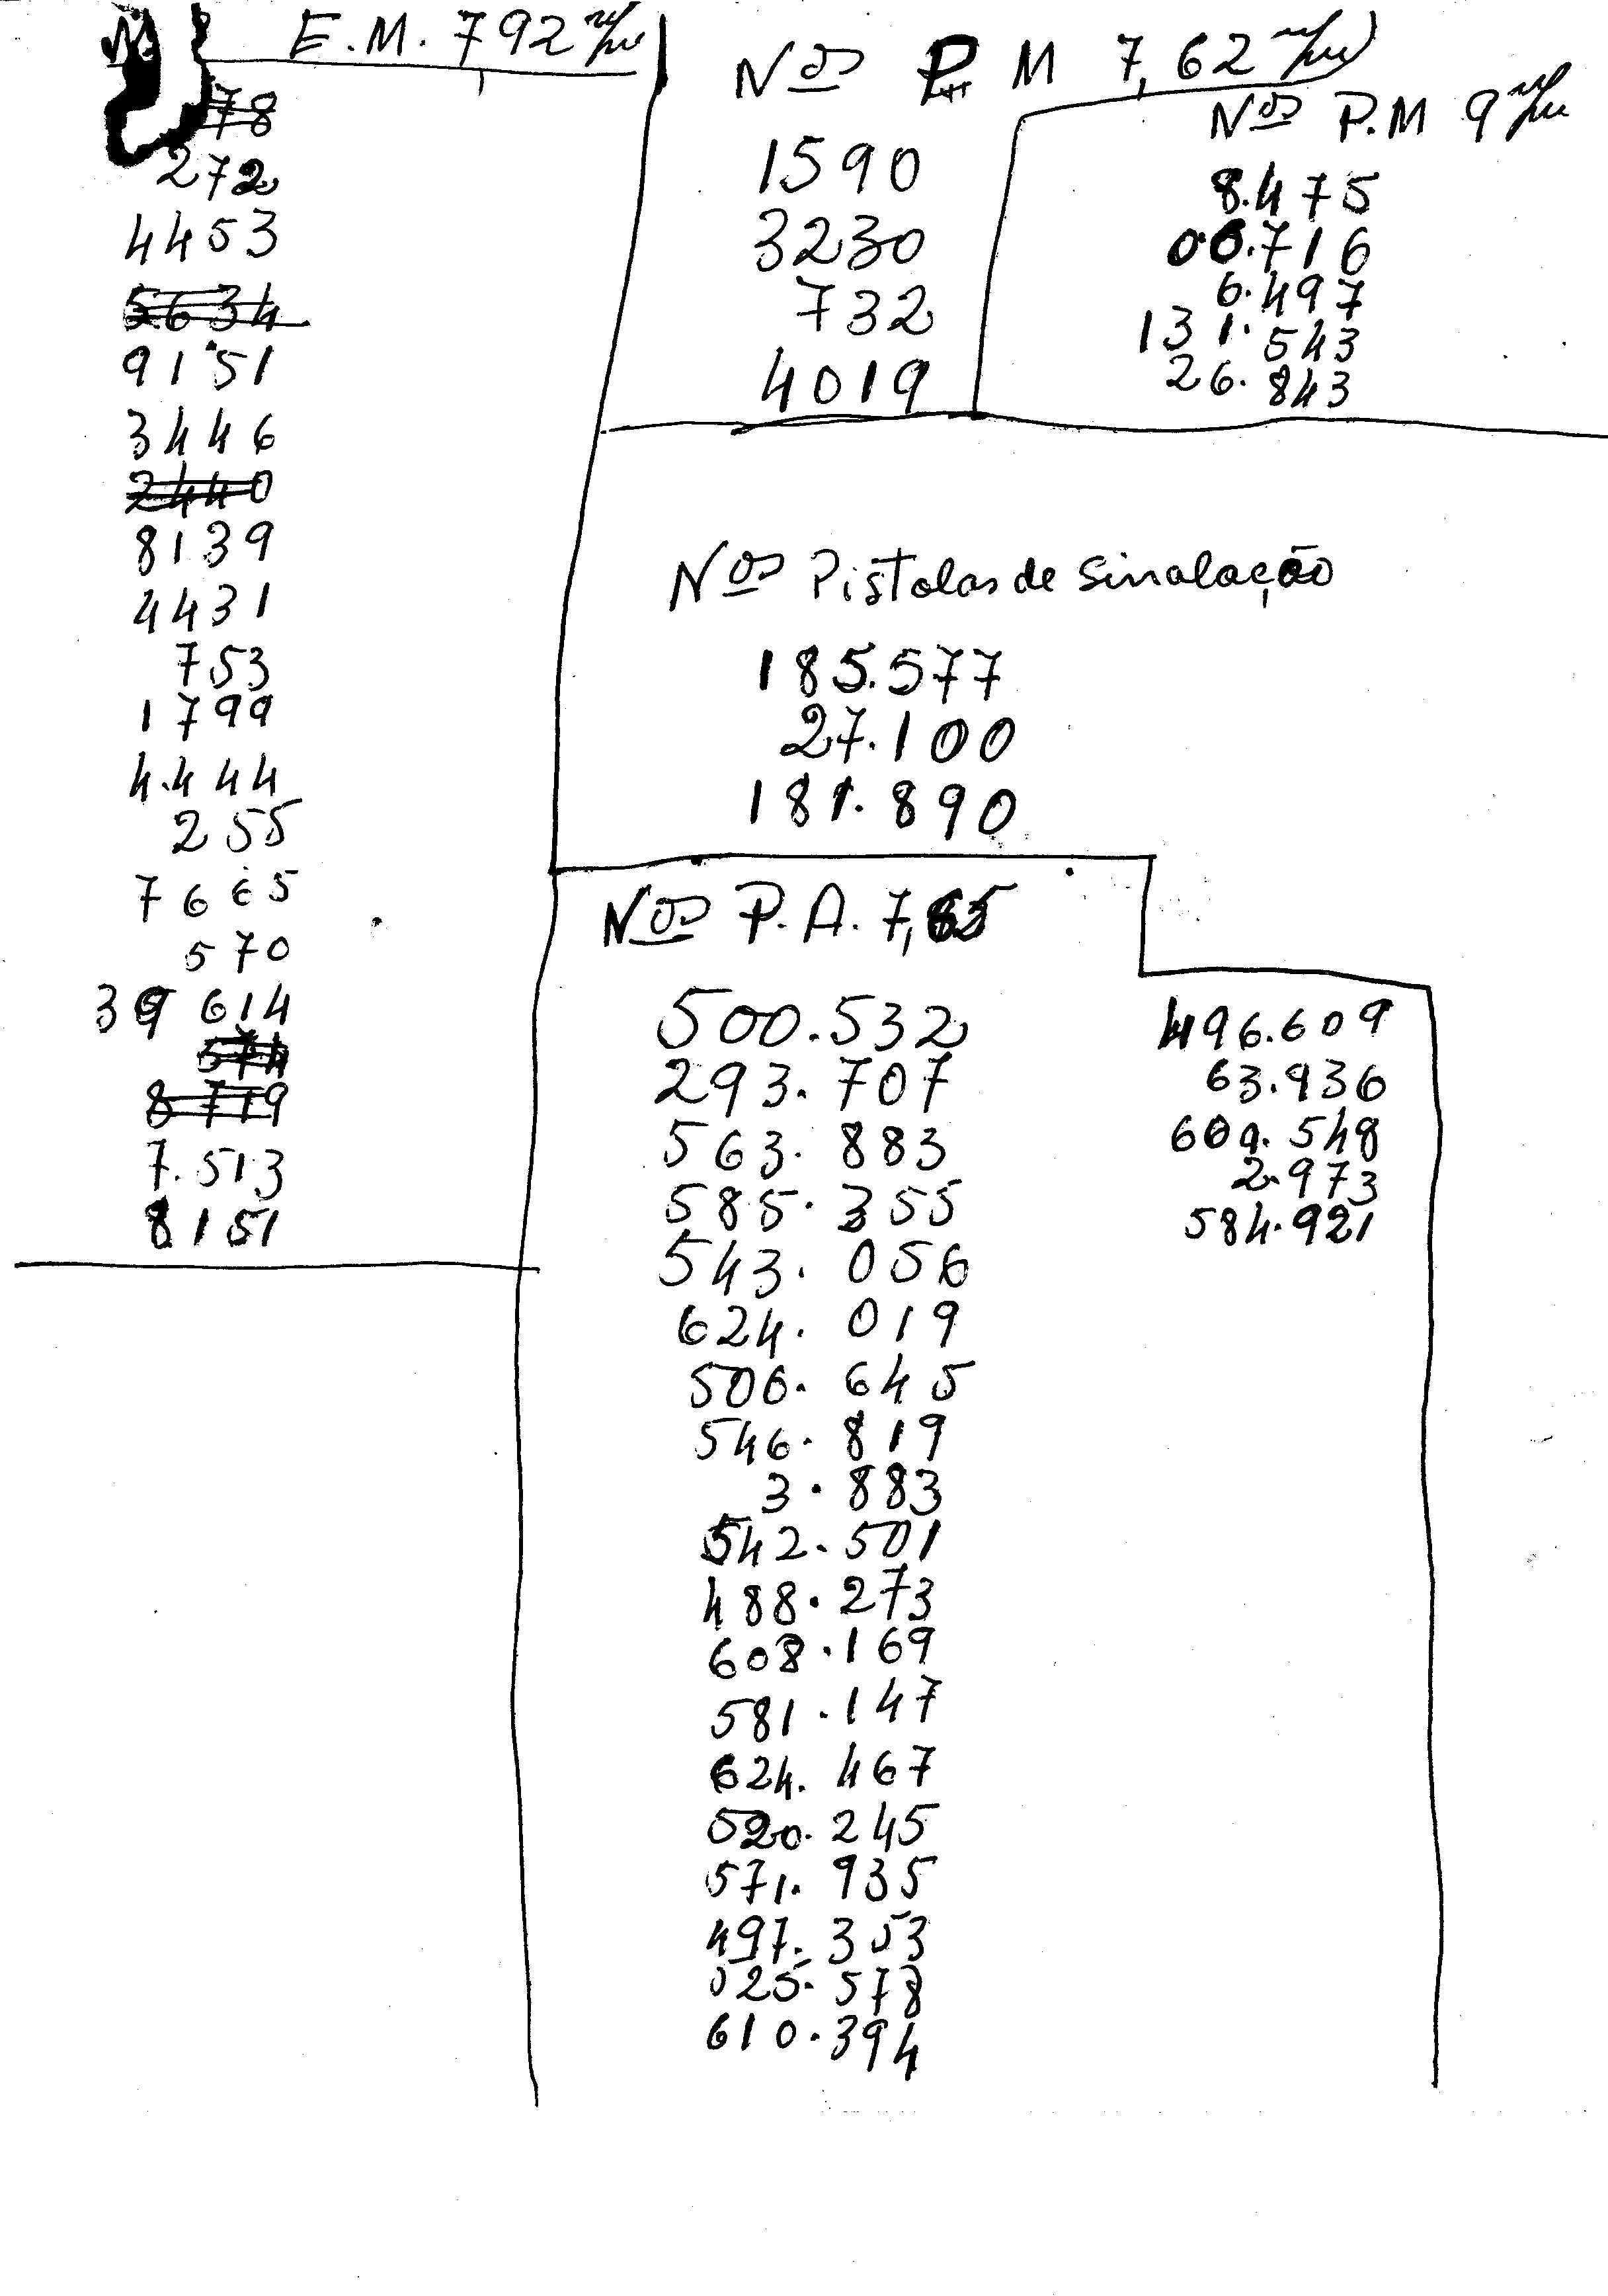 E.M. 7,92 m/m
78
272
4453
5634
9151
3446
2440
8139
4431
753
1799
4.444
255
7665
570
39 614
574
8719
7.513
8151
Nos P.M 7,62 m/m
1590
3230
732
4019
Nos P.M 9 m/m
8.475
00.716
6.497
131.543
26.843
Nos Pistolas de Sinalação
185.577
27.100
181.890
Nos P.A. 7,65
500.532
293.707
563.883
585.355
543.056
624.019
506.645
546.819
3.883
542.501
488.273
608.169
581.147
624.467
520.245
571.935
497.353
025.578
610.394
496.609
63.936
609.548
2.973
584.921